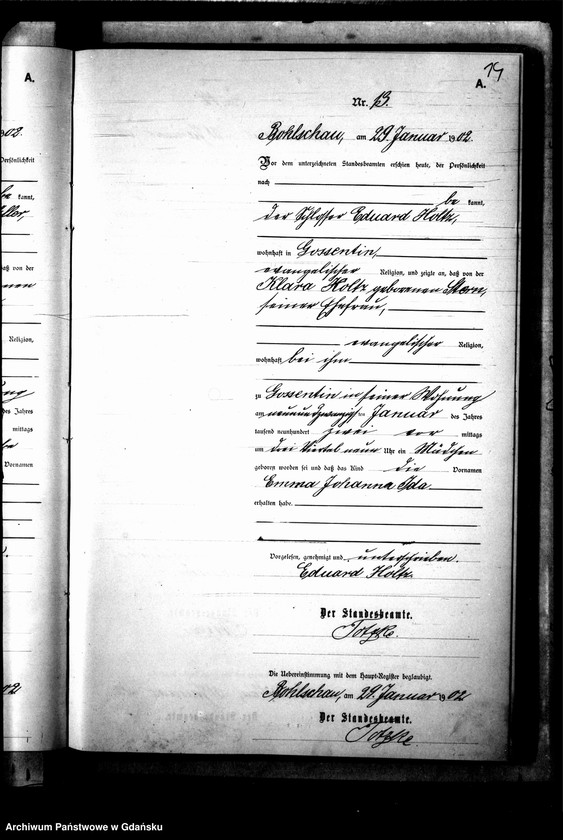 A.
902.
Persönlichkeit
be kannt,
daß von der
Religion,
des Jahres
mittags
Vornamen
02
14
A.
Nr. 13.
Bohlschau, am 29. Januar 1902.
Vor dem unterzeichneten Standesbeamten erschien heute, der Persönlichkeit
nach
be kannt,
der Schlosser Eduard Holtz,
wohnhaft in Gossentin,
evangelischer Religion, und zeigte an, daß von der
Klara Holtz geborenen Stern,
seiner Ehefrau,
evangelischer Religion,
wohnhaft bei ihm
zu Gossentin in seiner Wohnung
am neunundzwanzigsten Januar des Jahres
tausend neunhundert zwei vor mittags
um drei Viertel neun Uhr ein Mädchen
geboren worden sei und daß das Kind die Vornamen
Emma Johanna Ida
erhalten habe.
Vorgelesen, genehmigt und unterschrieben.
Eduard Holtz.
Der Standesbeamte.
Totzke.
Die Uebereinstimmung mit dem Haupt-Register beglaubigt.
Bohlschau, am 29. Januar 1902
Der Standesbeamte.
Totzke
Archiwum Państwowe w Gdańsku